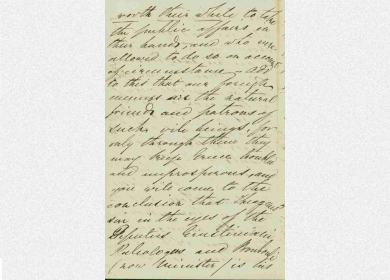 worth their while to take
the public affairs in
their hands, and who were
allowed to do so on account
of circumstances - add
to this that our foreign
enemies are the natural
friends and patrons of
such vile beings, for
only through them they
may keep Greece humble
and unprosperous, and
you will come to the
conclusion that
sin in the eyes of the
Deputies
and
(now Minister) is but